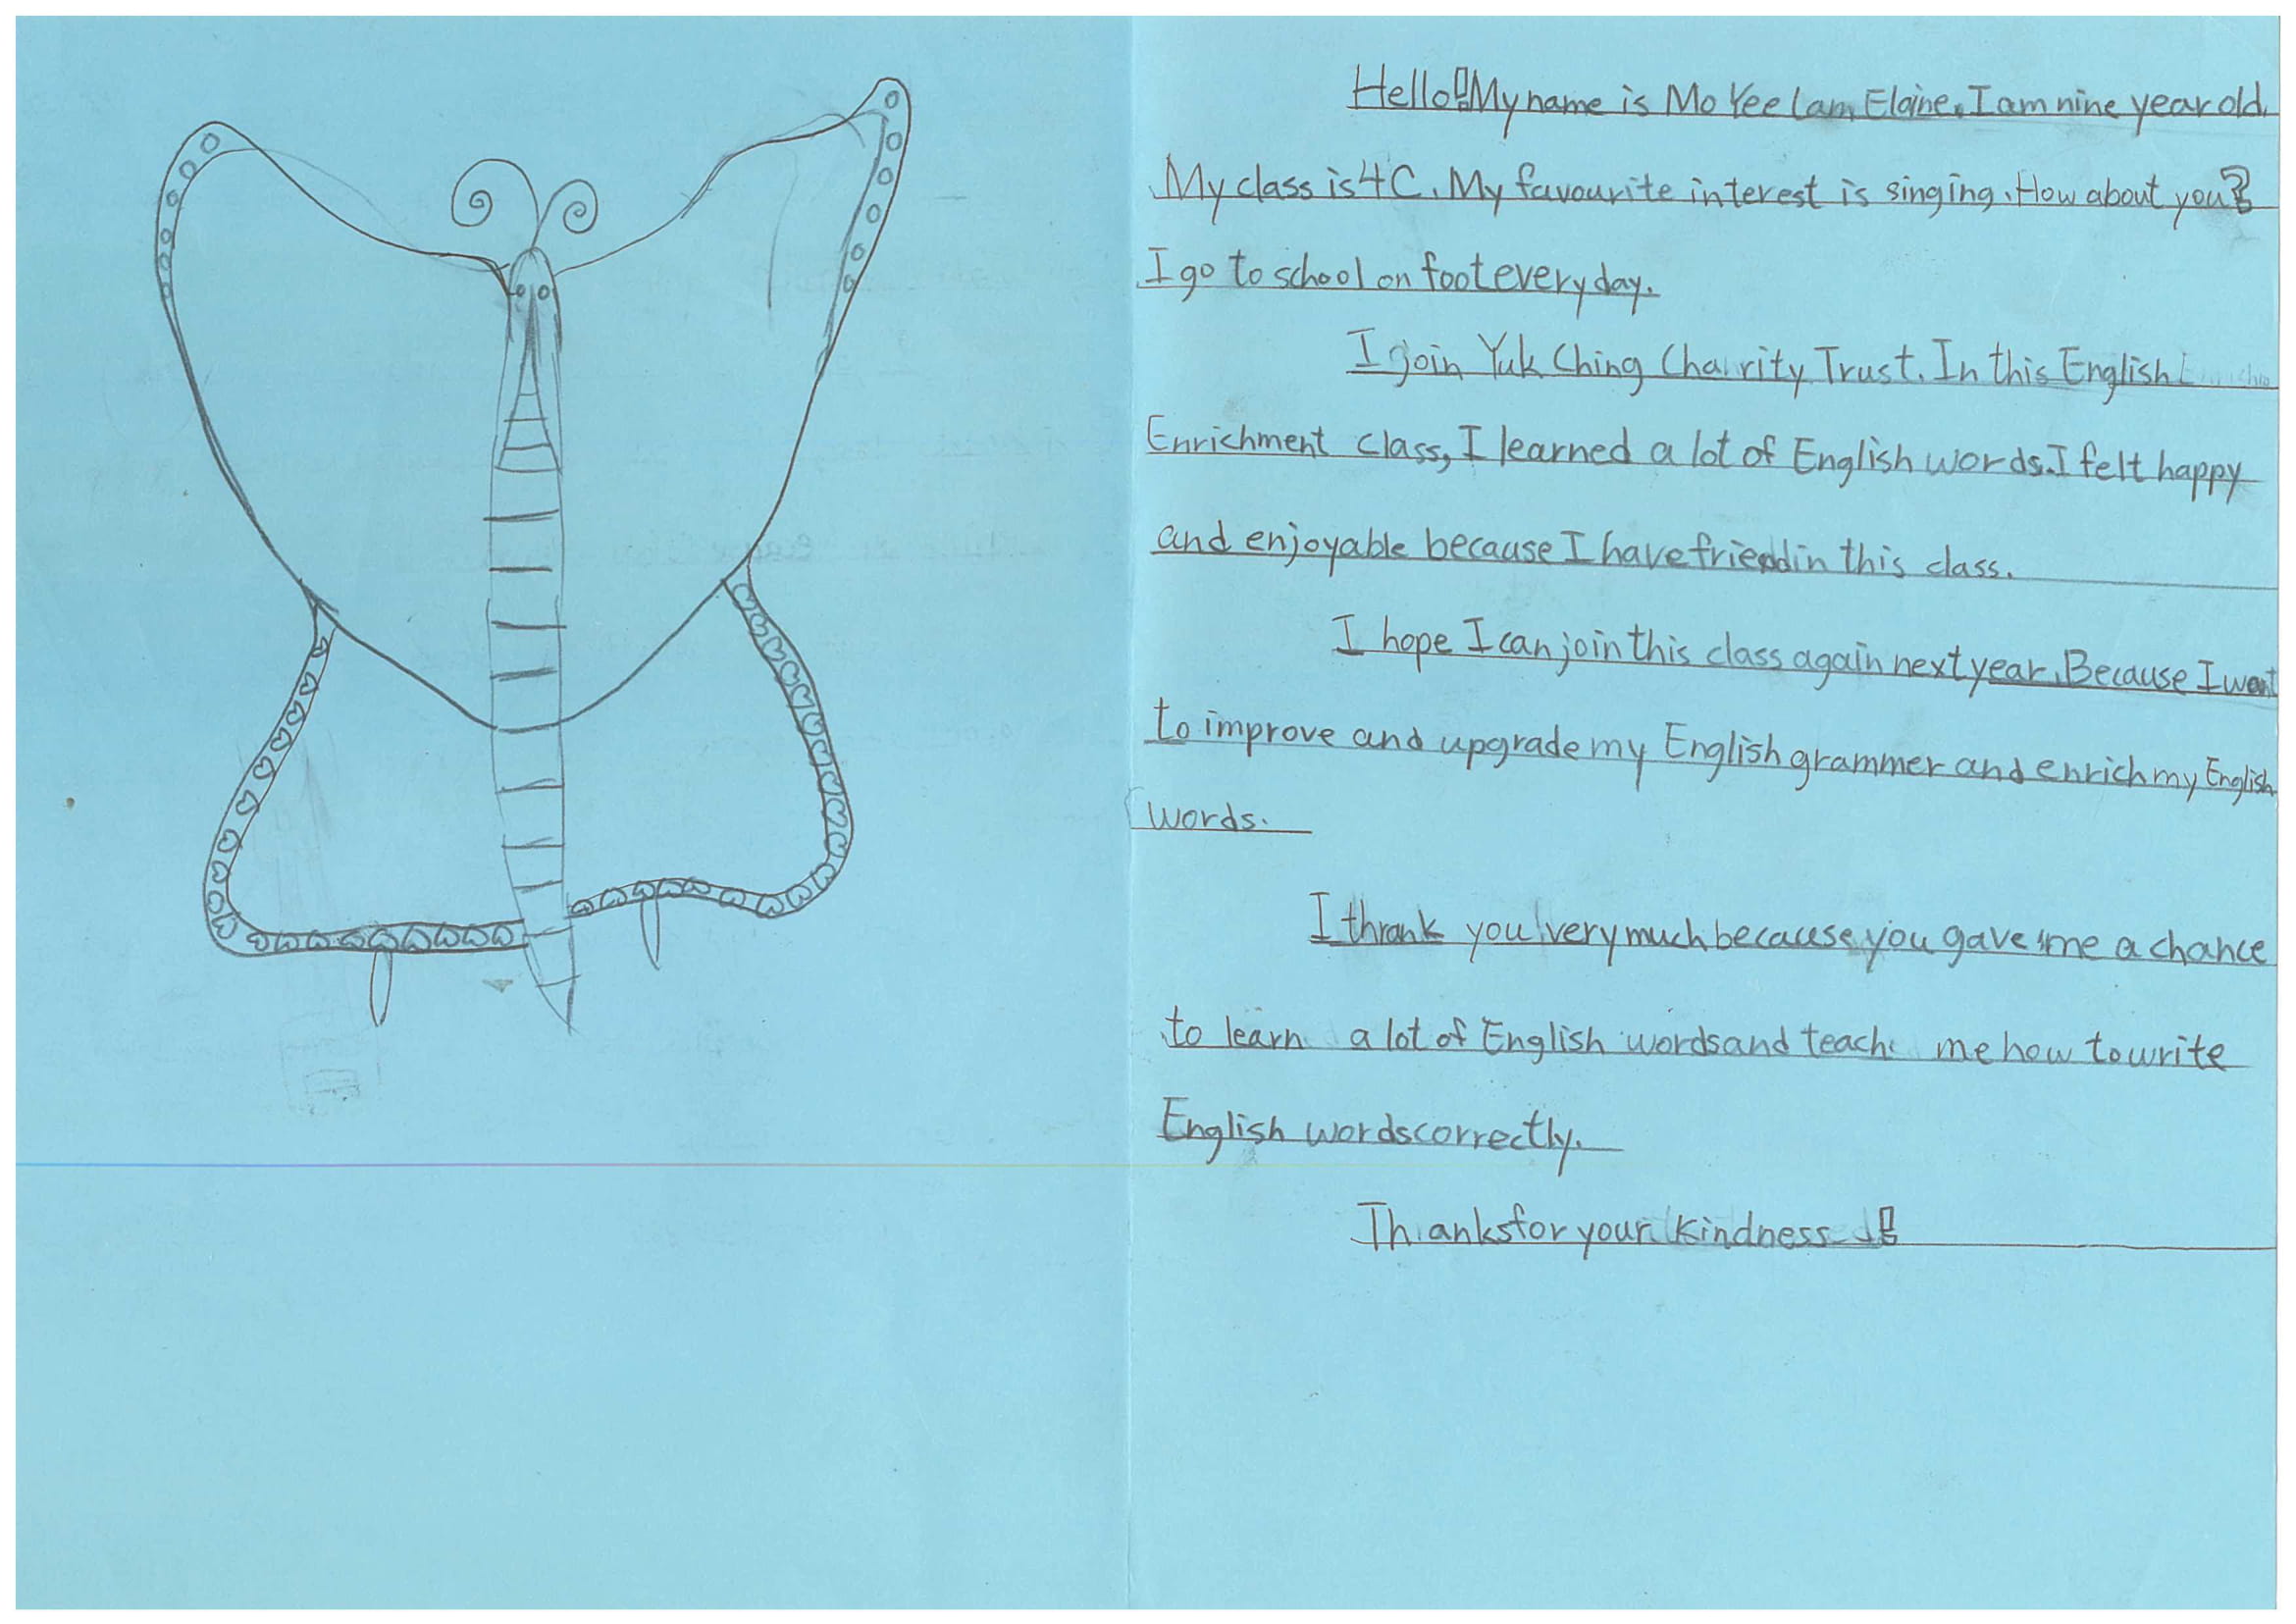 Hello! My name is Mo Yee Lam Elaine. I am nine year old.
My class is 4C. My favourite interest is singing. How about you?
I go to school on foot every day.
I join Yuk Ching Charity Trust. In this English
Enrichment class, I learned a lot of English words. I felt happy
and enjoyable because I have friend in this class.
I hope I can join this class again next year. Because I want
to improve and upgrade my English grammer and enrich my English
words.
I thank you very much because you gave me a chance
to learn a lot of English words and teach me how to write
English words correctly.
Thanks for your kindness!